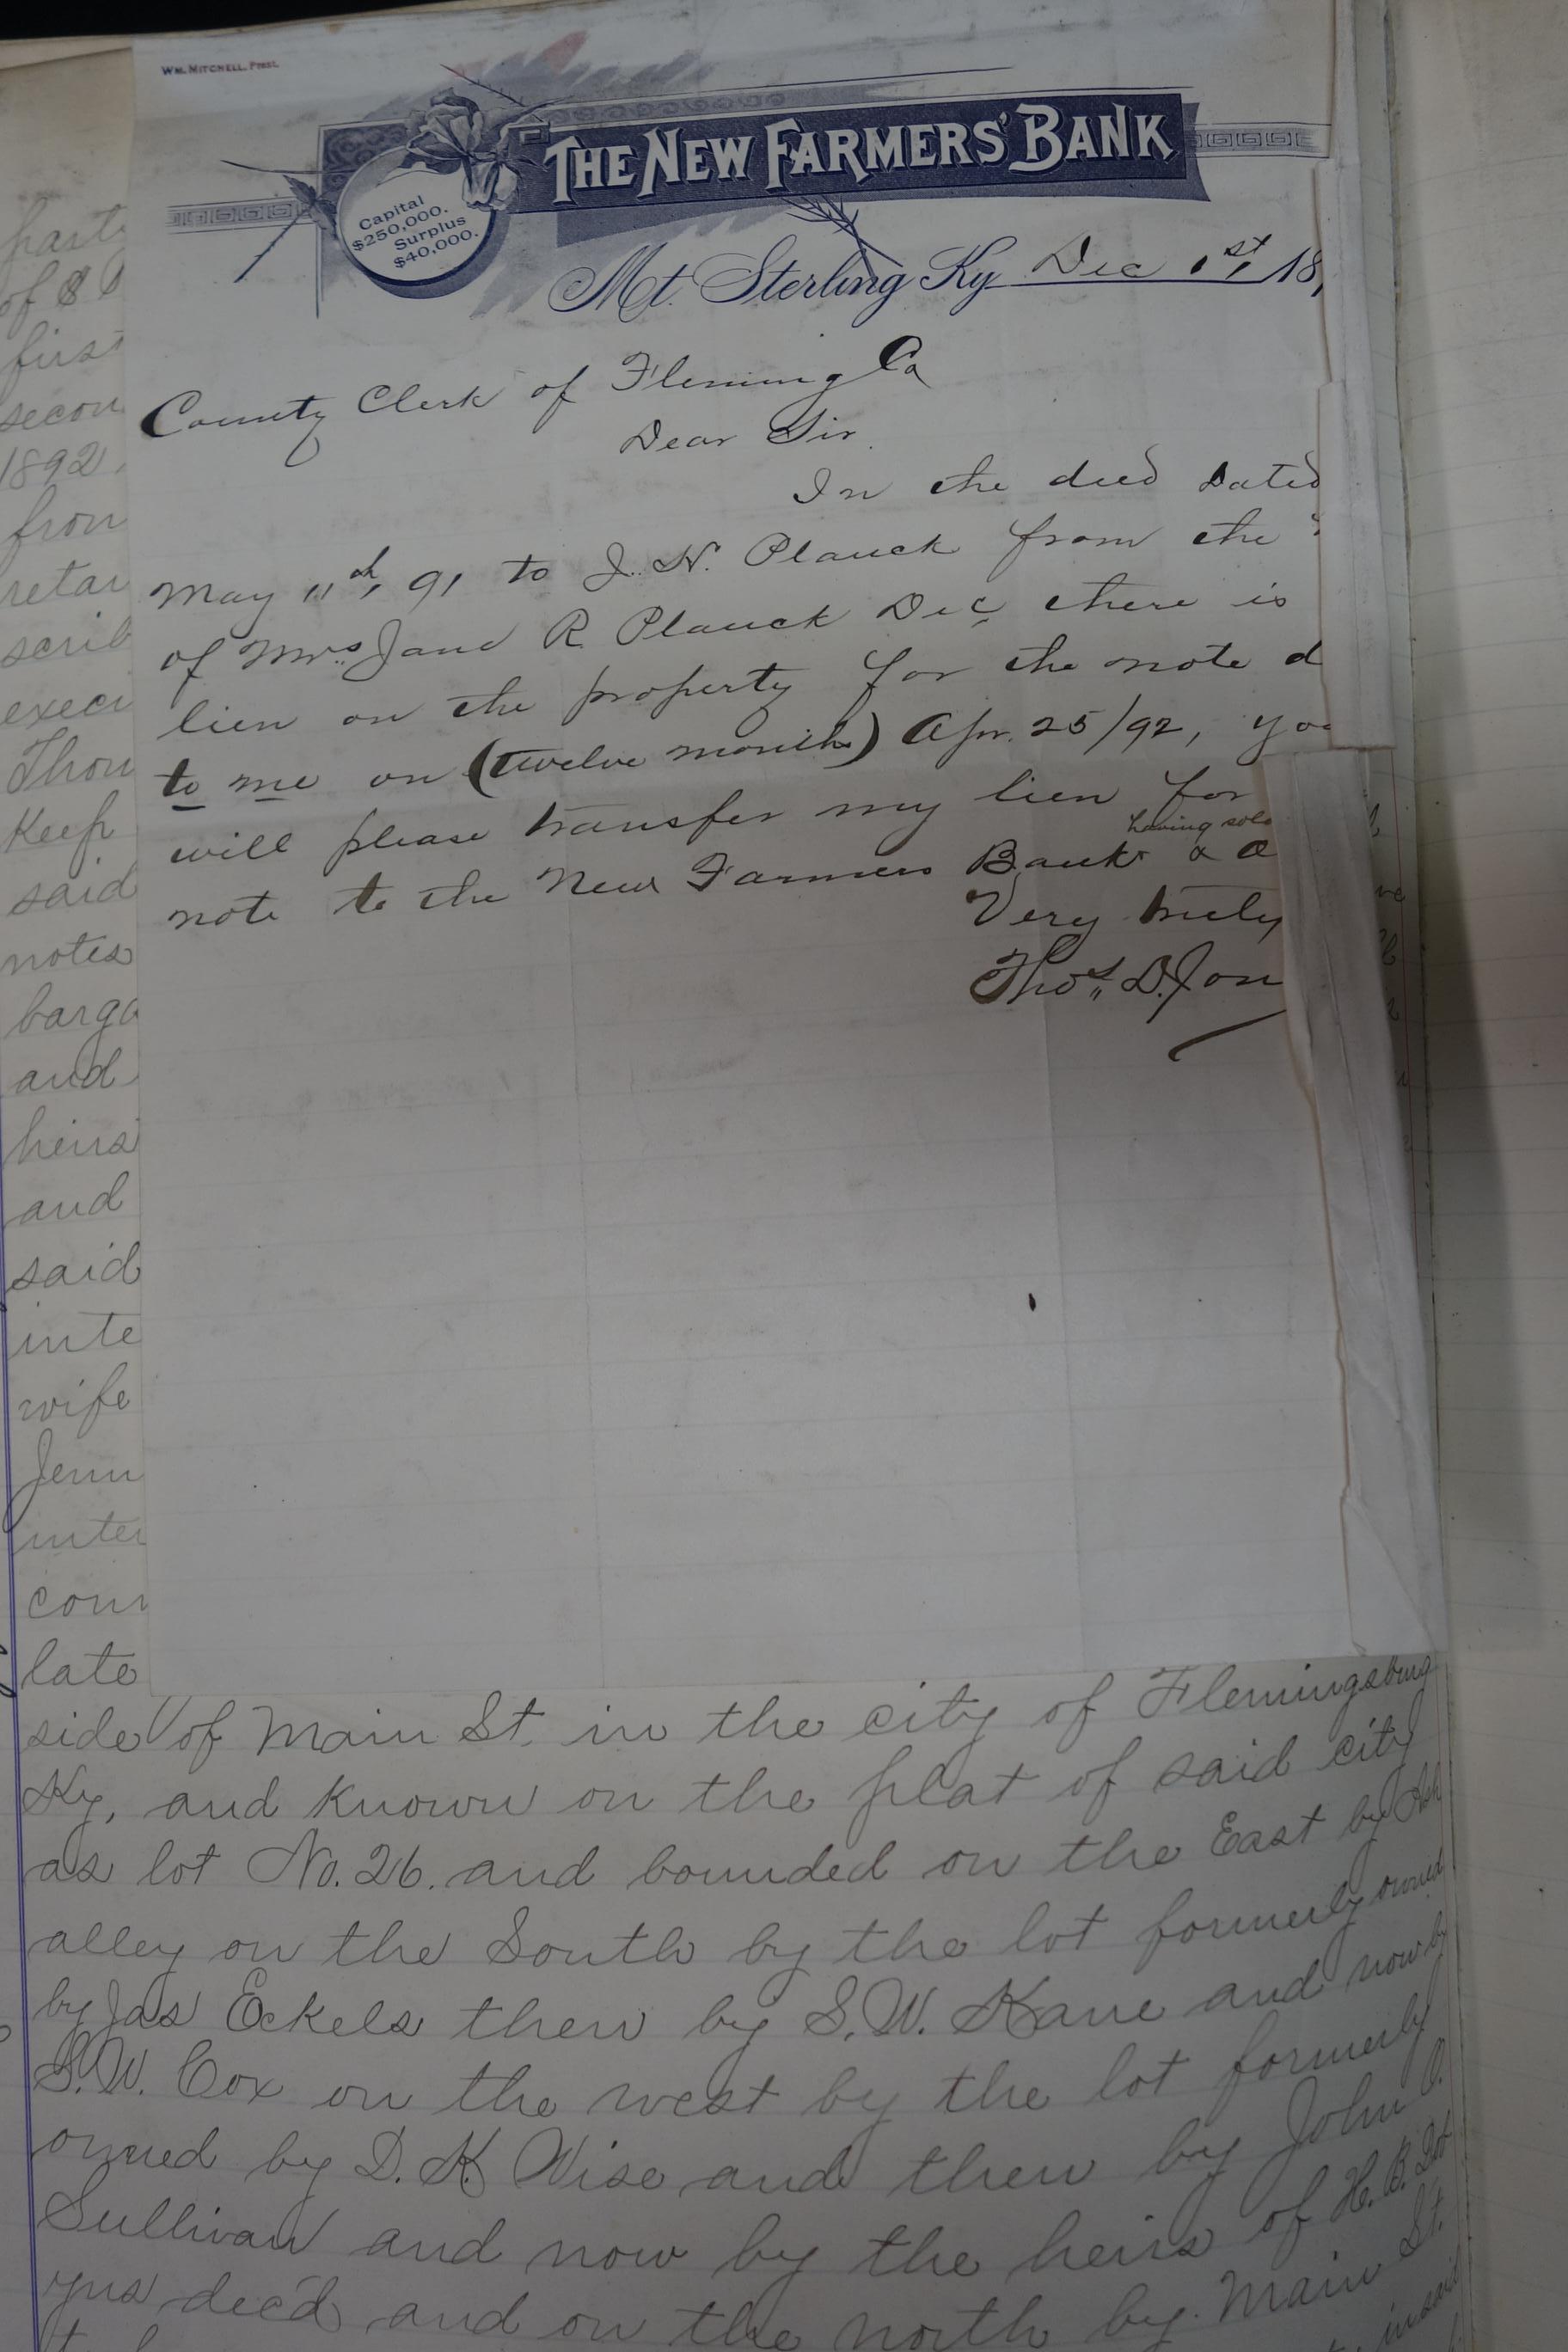 WM. MITCHELL, PREST.
THE NEW FARMERS' BANK
Capital
$250,000.
Surplus
$40,000.
Mt. Sterling Ky Dec 1st, 18
County Clerk of Fleming Co
Dear Sir.
In the deed dated
May 11th, 91 to J. N. Planck from the
of Mrs Jane R. Planck Dec, there is
lien on the property for the note d
to me on (twelve months) Apr. 25/92, you
will please transfer my lien for
having sold
note to the New Farmers Bank &
Very truly
Thos. D. Jon
part
of $
first
secon
1892
from
retai
scrib
execu
Thom
Keep
said
notes
barga
and
heirs
and
said
inte
wife
Jenn
inter
com
late
side of Main St. in the city of Flemingsburg
Ky, and known on the plat of said city
as lot No. 26. and bounded on the East by Ash
alley on the South by the lot formerly owned
by Jas Eckels then by S. W. Kane and now by
S. W. Cox on the west by the lot formerly
owned by D. K. Wise and then by John O.
Sullivan and now by the heirs of H. B. Dob
yns dec'd and on the north by Main St.
in said